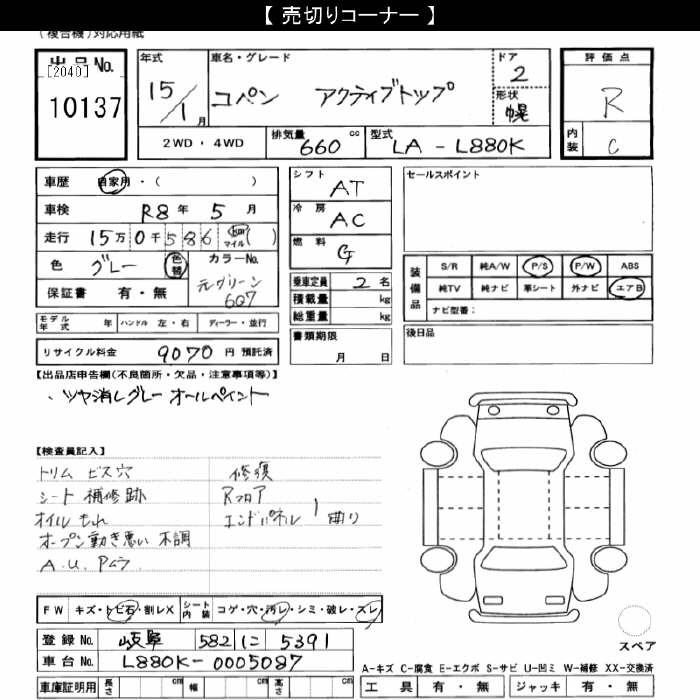 【 売切りコーナー 】
(複合機)対応用紙
出品No.
[2040]
10137
年式
15/1月
車名・グレード
コペン アクティブトップ
ドア
2
形状
幌
評価点
R
内装
C
2WD・4WD
排気量
660 cc
型式
LA - L880K
車歴 自家用・( )
車検 R8年 5月
走行 15万 0千 586 km マイル ( )
色 グレー 色替
カラーNo.
元グリーン
6Q7
保証書 有・無
シフト AT
冷房 AC
燃料 G
乗車定員 2名
積載量 kg
総重量 kg
書類期限
月 日
セールスポイント
装備品
S/R 純A/W P/S P/W ABS
純TV 純ナビ 革シート 外ナビ エアB
ナビ型番:
後日品
モデル年式 年 ハンドル 左・右 ディーラー・並行
リサイクル料金 9070 円 預託済
【出品店申告欄(不良箇所・欠品・注意事項等)】
、ツヤ消しグレー オールペイント
【検査員記入】
トリム ビス穴
シート 補修跡
オイルもれ
オープン動き悪い 不調
A.U. Pムラ
修復
Rフロア
エンドパネル 曲り
FW キズ・トビ石・割レX
シート内装 コゲ・穴・汚レ・シミ・破レ・スレ
登録No. 岐阜 582 に 5391
車台No. L880K-0005087
車庫証明用 長さ cm 幅 cm 高さ cm
スペア
A-キズ C-腐食 E-エクボ S-サビ U-凹ミ W-補修 XX-交換済
工具 有・無 ジャッキ 有・無